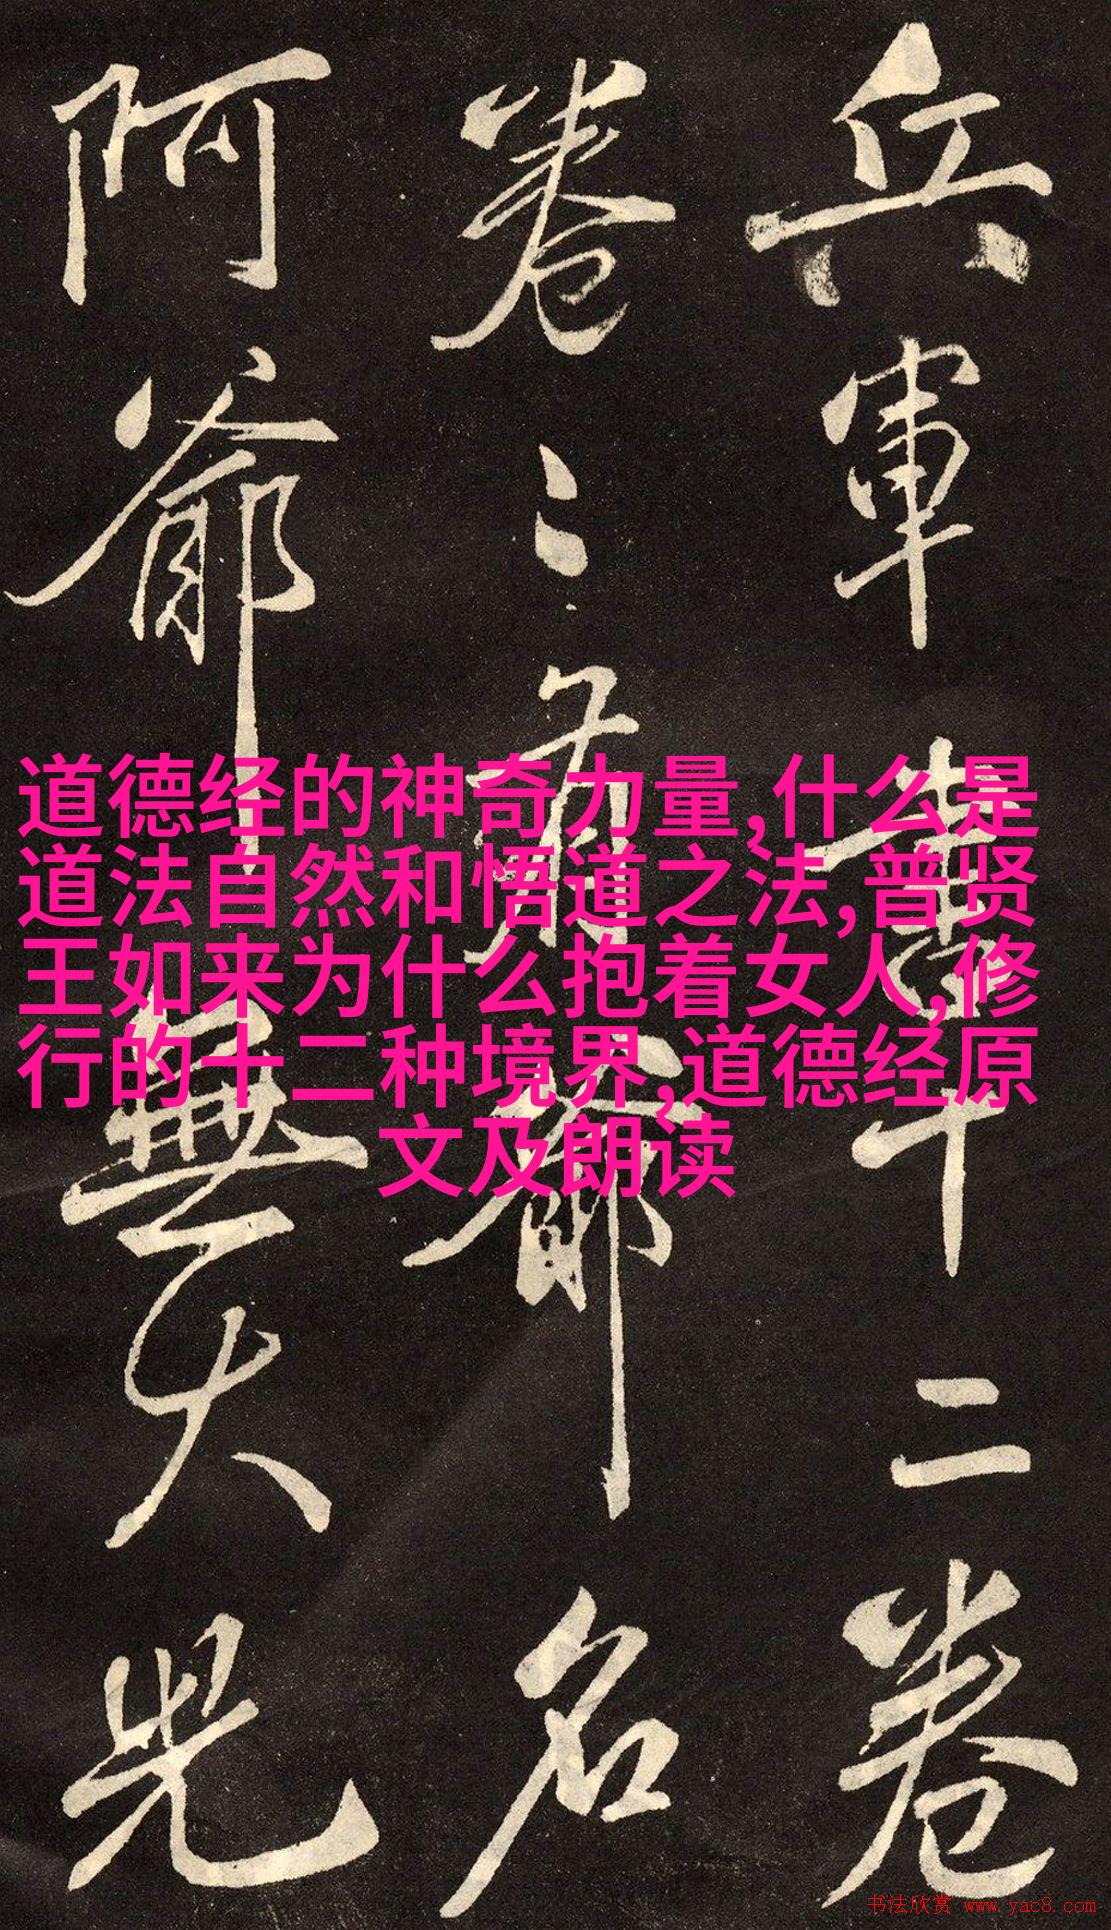 兵軍書十二卷
卷〻有爺名
阿爺無大兒
道德经的神奇力量,什么是
道法自然和悟道之法,普贤
王如来为什么抱着女人,修
行的十二种境界,道德经原
文及朗读
书法欣赏 www.yac8.com